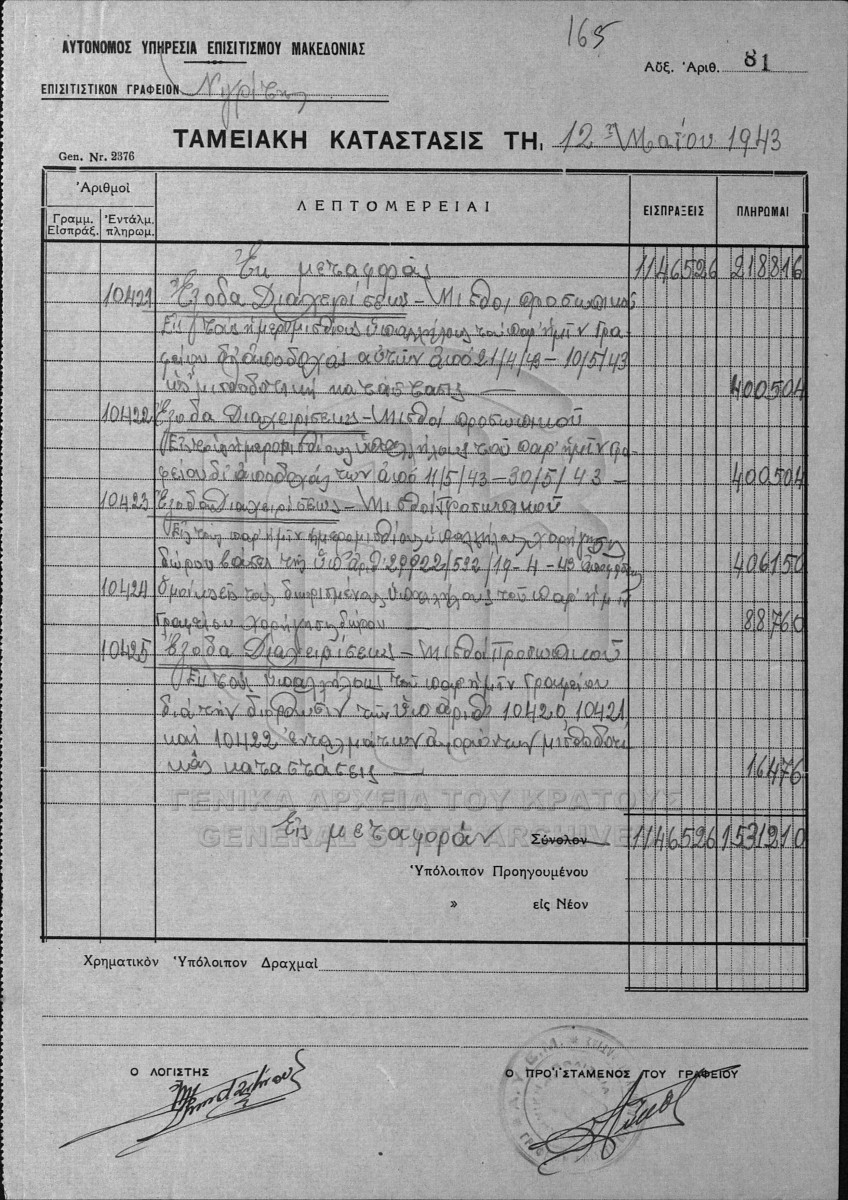 165
ΑΥΤΟΝΟΜΟΣ ΥΠΗΡΕΣΙΑ ΕΠΙΣΙΤΙΣΜΟΥ ΜΑΚΕΔΟΝΙΑΣ
Αὔξ. Ἀριθ. 81
ΕΠΙΣΙΤΙΣΤΙΚΟΝ ΓΡΑΦΕΙΟΝ Νιγρίτης
ΤΑΜΕΙΑΚΗ ΚΑΤΑΣΤΑΣΙΣ ΤΗ, 12 Μαΐου 1943
Gen. Nr. 2376
Ἀριθμοὶ
Γραμμ. Εἰσπράξ. Ἐντάλμ. πληρωμ. ΛΕΠΤΟΜΕΡΕΙΑΙ ΕΙΣΠΡΑΞΕΙΣ ΠΛΗΡΩΜΑΙ
Ἐκ μεταφορᾶς 1146526 218816
10421 Ἔξοδα Διαχειρίσεως – Μισθοὶ προσωπικοῦ
Εἰς τοὺς ἡμερομισθίους ὑπαλλήλους τοῦ παρ' ἡμῖν Γρα-
φείου δι' ἀποδοχὰς αὐτῶν ἀπὸ 21/4/43 – 10/5/43
ὡς μισθοδοτικὴ κατάστασις — 400504
10422 Ἔξοδα Διαχειρίσεως – Μισθοὶ προσωπικοῦ
ἡμερομισθίους ὑπαλλήλους τοῦ παρ' ἡμῖν Γρα-
φείου δι' ἀποδοχάς των ἀπὸ 11/5/43 – 30/5/43 – 400504
10423 Ἔξοδα Διαχειρίσεως – Μισθοὶ Προσωπικοῦ
Εἰς τοὺς παρ' ἡμῖν ἡμερομισθίους ὑπαλλήλους χορήγησις
δώρου βάσει τῆς ὑπ' ἀρ. 29922/592/19-4-43 406150
10424 Ὁμοίως εἰς τοὺς διωρισμένους ὑπαλλήλους τοῦ παρ' ἡμῖν
Γραφείου χορήγησις δώρου — 88760
10425 Ἔξοδα Διαχειρίσεως – Μισθοὶ Προσωπικοῦ
Εἰς τοὺς ὑπαλλήλους τοῦ παρ' ἡμῖν Γραφείου
διὰ τὴν διόρθωσιν τῶν ὑπ' ἀριθ 10420, 10421,
καὶ 10422 ἐνταλμάτων μισθοδοτι-
κὰς καταστάσεις — 16476
ΓΕΝΙΚΑ ΑΡΧΕΙΑ ΤΟΥ ΚΡΑΤΟΥΣ
GENERAL STATE ARCHIVES
Εἰς μεταφορὰν Σύνολον 1146526 1531210
Ὑπόλοιπον Προηγουμένου
» εἰς Νέον
Χρηματικὸν Ὑπόλοιπον Δραχμαὶ
Ο ΛΟΓΙΣΤΗΣ
Ο ΠΡΟΪΣΤΑΜΕΝΟΣ ΤΟΥ ΓΡΑΦΕΙΟΥ